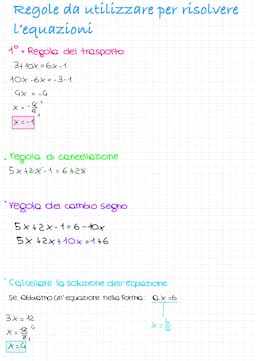 Regole da utilizzare per risolvere
l'equazioni
1° • Regola del trasporto
3+10x=6x-1
10x-6x=-3-1
4x=-4
x=-4/4
x=-1
• regola di cancellazione
5x+2x-1=6+2x
• regola del cambio segno
5x+2x-1=6-10x
5x+2x+10x=1+6
• Calcolare la soluzione dell'equazione
Se abbiamo un'equazione nella forma: ax=b
x=b/a
3x=12
x=12/3 4
x=4